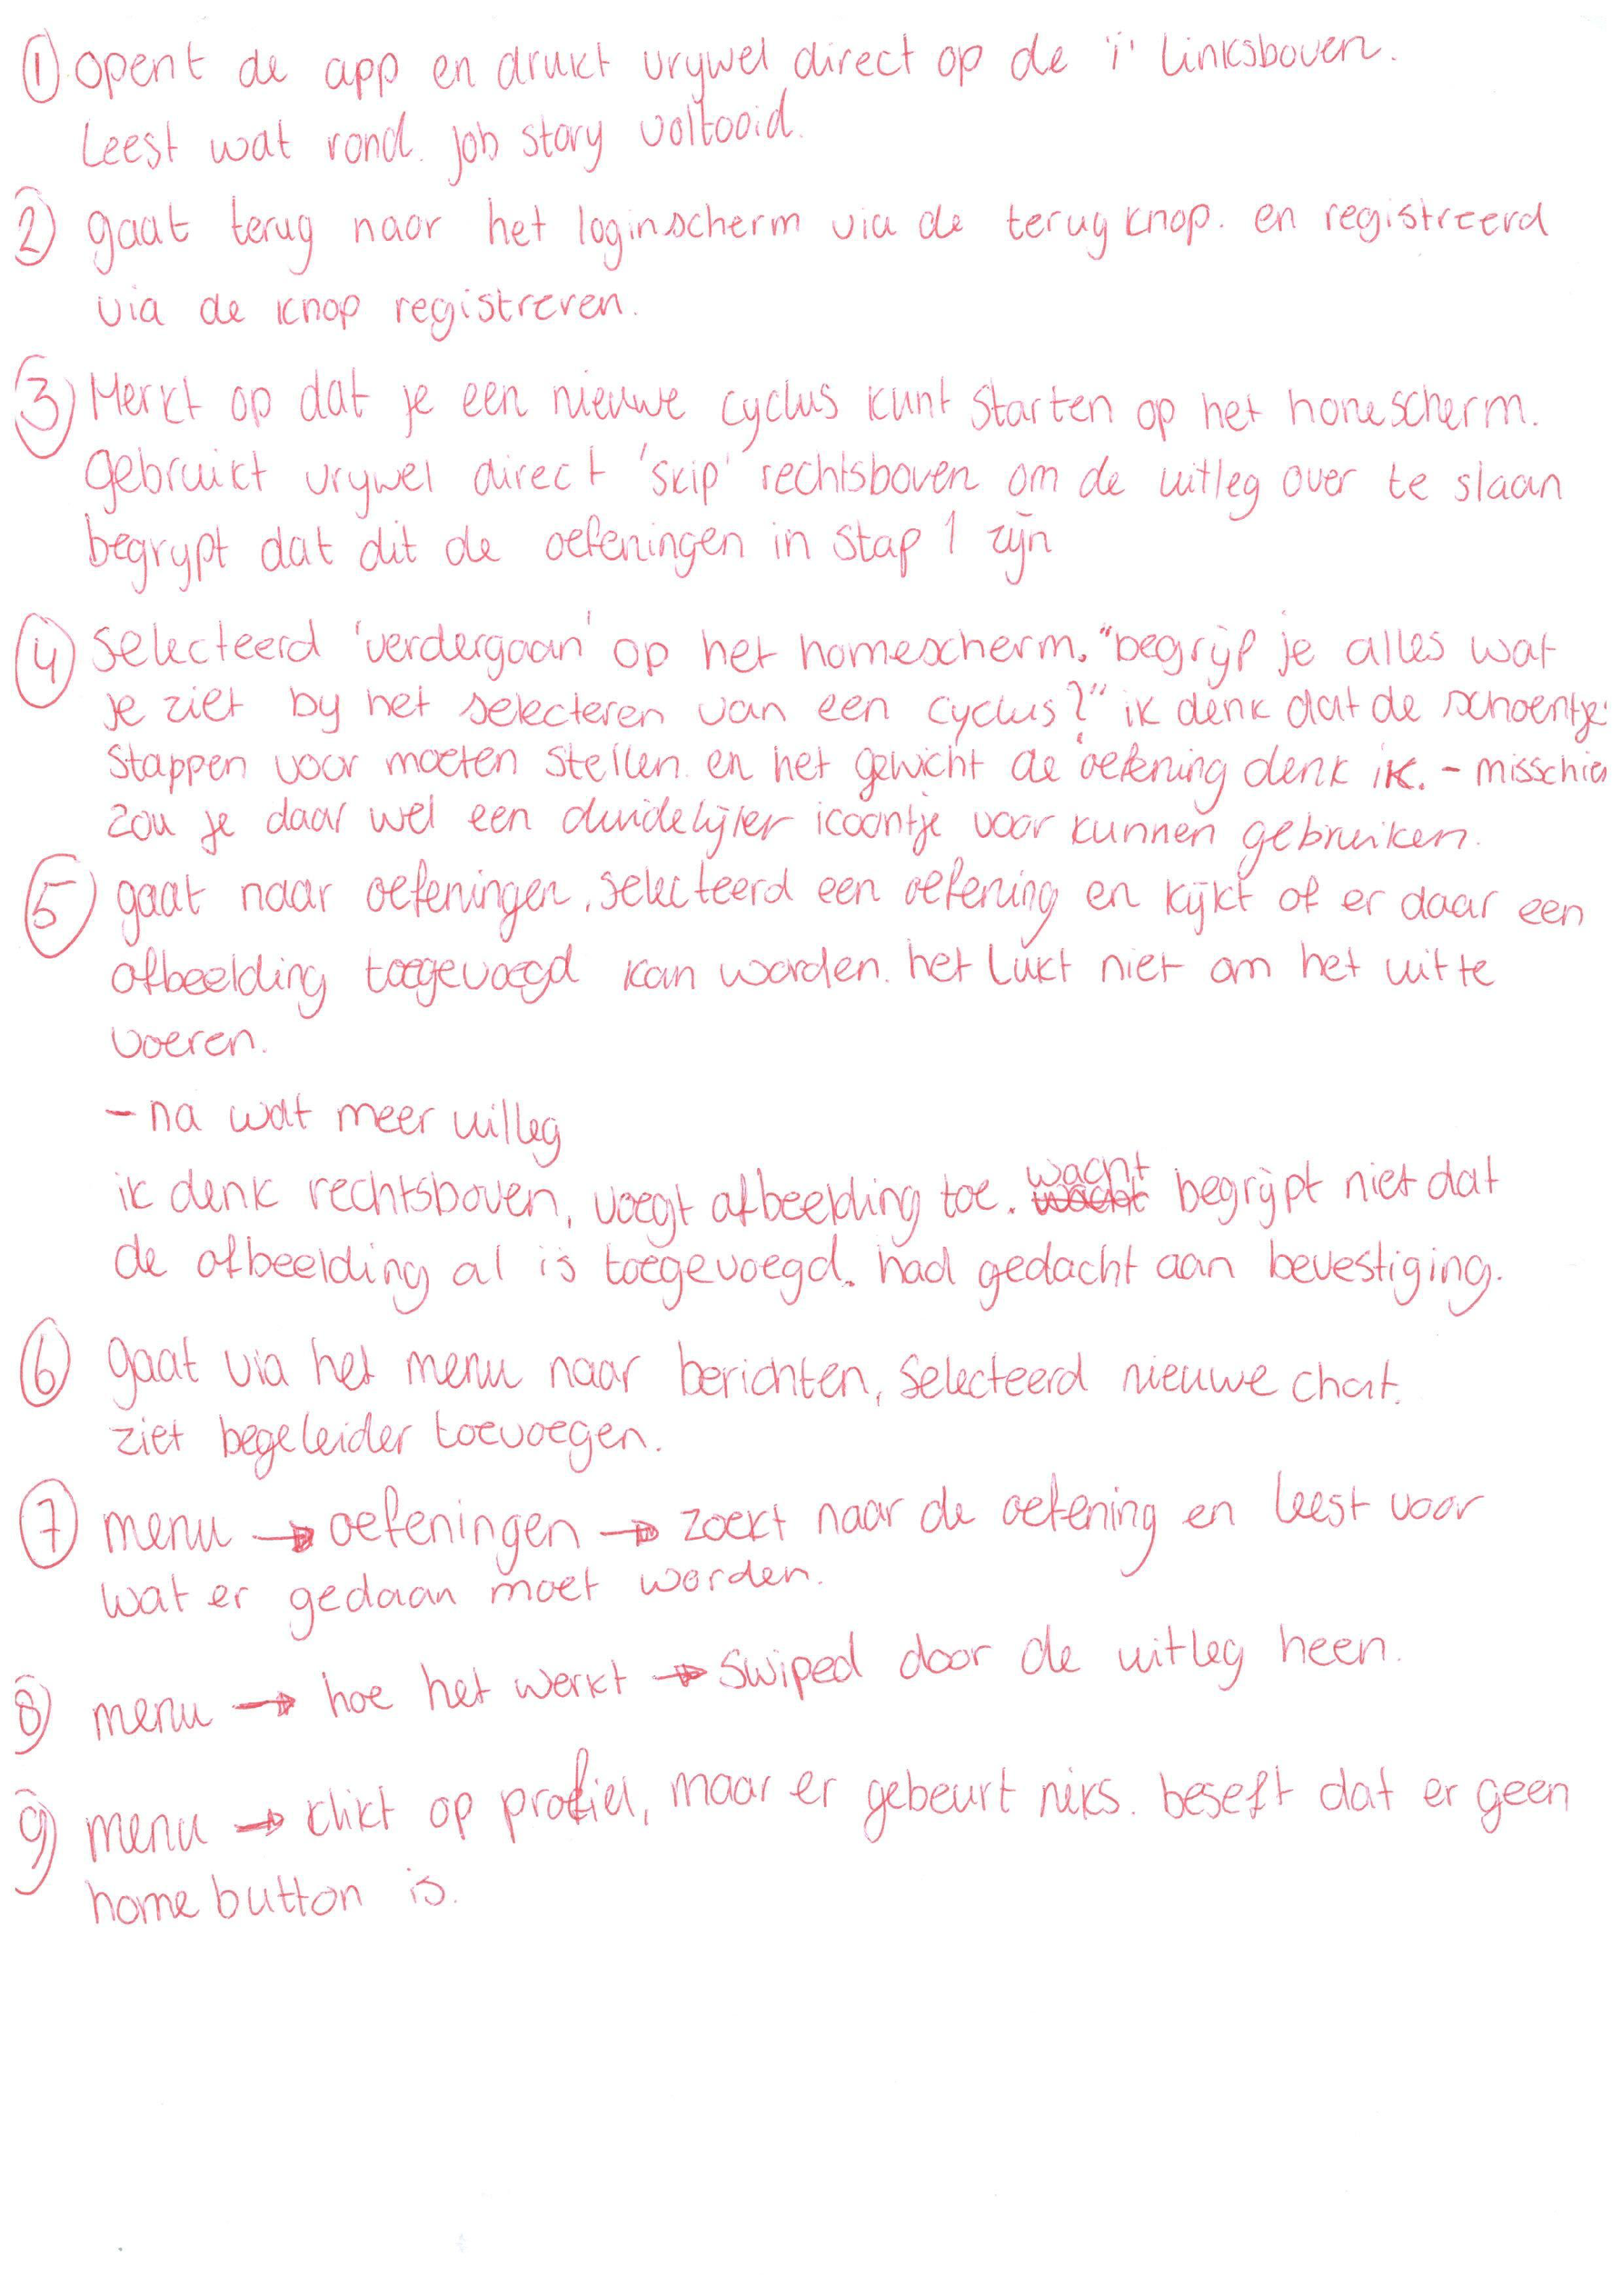 ① opent de app en drukt vrywel direct op de 'i' linksboven.
Leest wat rond. job story voltooid.
② gaat terug naar het loginscherm via de terug knop. en registreerd
via de knop registreren.
③ Merkt op dat je een nieuwe cyclus kunt starten op het homescherm.
Gebruikt vrywel direct 'skip' rechtsboven om de uitleg over te slaan
begrypt dat dit de oefeningen in stap 1 zijn
④ selecteerd 'verdergaan' op het homescherm. "begrijp je alles wat
je ziet by het selecteren van een cyclus?" ik denk dat de schoentje
stappen voor moeten stellen en het gewicht de oefening denk ik. - misschien
zou je daar wel een duidelijker icoontje voor kunnen gebruiken.
⑤ gaat naar oefeningen, selecteerd een oefening en kijkt of er daar een
afbeelding toegevoegd kan worden. het lukt niet om het uit te
voeren.
- na wat meer uitleg
ik denk rechtsboven, voegt afbeelding toe. wacht begrijpt niet dat
de afbeelding al is toegevoegd. had gedacht aan bevestiging.
⑥ gaat via het menu naar berichten, selecteerd nieuwe chat.
ziet begeleider toevoegen.
⑦ menu → oefeningen → zoekt naar de oefening en leest voor
wat er gedaan moet worden.
⑧ menu → hoe het werkt → swiped door de uitleg heen.
⑨ menu → klikt op profiel, maar er gebeurt niks. beseft dat er geen
home button is.